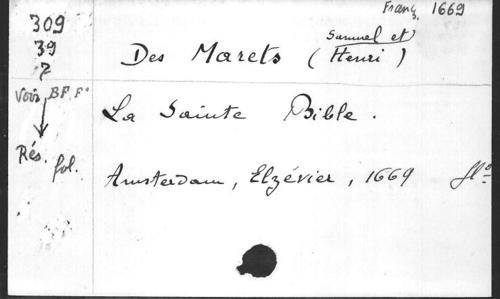 Franç. 1669
309
39
7
Samuel et
Des Marets ( Henri )
Voir BF Fº
La Sainte Bible.
Rés. fol.
Amsterdam, Elzévier, 1669 flº